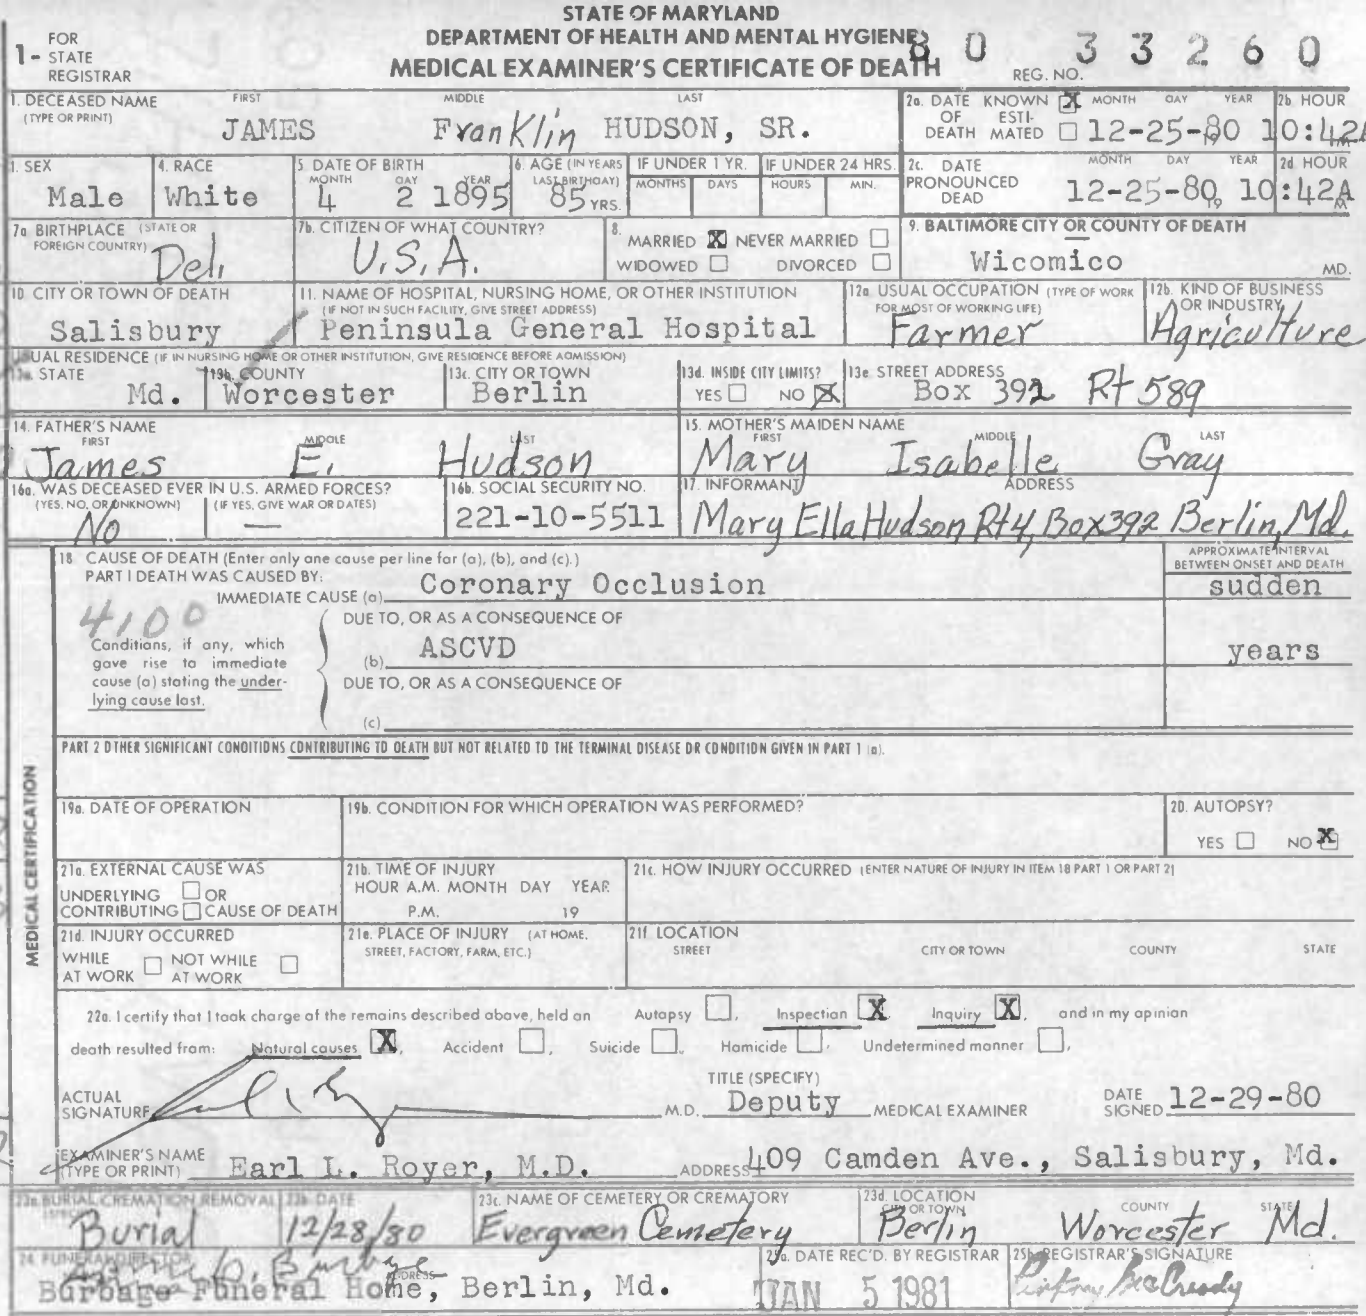 STATE OF MARYLAND
DEPARTMENT OF HEALTH AND MENTAL HYGIENE
MEDICAL EXAMINER'S CERTIFICATE OF DEATH
1- FOR STATE REGISTRAR
REG. NO. 80 33260
1. DECEASED NAME (TYPE OR PRINT) FIRST MIDDLE LAST
JAMES Franklin HUDSON, SR.
2a. DATE OF DEATH KNOWN X ESTIMATED MONTH DAY YEAR 12-25-80 19
2b. HOUR 10:42A M
3. SEX Male
4. RACE White
5. DATE OF BIRTH MONTH DAY YEAR 4 2 1895
6. AGE (IN YEARS LAST BIRTHDAY) 85 YRS.
IF UNDER 1 YR. MONTHS DAYS
IF UNDER 24 HRS. HOURS MIN.
2c. DATE PRONOUNCED DEAD MONTH DAY YEAR 12-25-80, 19
2d. HOUR 10:42A M
7a. BIRTHPLACE (STATE OR FOREIGN COUNTRY) Del.
7b. CITIZEN OF WHAT COUNTRY? U.S.A.
8. MARRIED X NEVER MARRIED WIDOWED DIVORCED
9. BALTIMORE CITY OR COUNTY OF DEATH Wicomico MD.
10. CITY OR TOWN OF DEATH Salisbury
11. NAME OF HOSPITAL, NURSING HOME, OR OTHER INSTITUTION (IF NOT IN SUCH FACILITY, GIVE STREET ADDRESS) Peninsula General Hospital
12a. USUAL OCCUPATION (TYPE OF WORK FOR MOST OF WORKING LIFE) Farmer
12b. KIND OF BUSINESS OR INDUSTRY Agriculture
USUAL RESIDENCE (IF IN NURSING HOME OR OTHER INSTITUTION, GIVE RESIDENCE BEFORE ADMISSION)
13a. STATE Md.
13b. COUNTY Worcester
13c. CITY OR TOWN Berlin
13d. INSIDE CITY LIMITS? YES NO X
13e. STREET ADDRESS Box 392 Rt 589
14. FATHER'S NAME FIRST MIDDLE LAST James E. Hudson
15. MOTHER'S MAIDEN NAME FIRST MIDDLE LAST Mary Isabelle Gray
16a. WAS DECEASED EVER IN U.S. ARMED FORCES? (YES, NO, OR UNKNOWN) (IF YES, GIVE WAR OR DATES) No —
16b. SOCIAL SECURITY NO. 221-10-5511
17. INFORMANT ADDRESS Mary Ella Hudson Rt 4, Box 392 Berlin, Md.
MEDICAL CERTIFICATION
18 CAUSE OF DEATH (Enter only one cause per line for (a), (b), and (c).)
APPROXIMATE INTERVAL BETWEEN ONSET AND DEATH
PART I DEATH WAS CAUSED BY:
IMMEDIATE CAUSE (a) Coronary Occlusion sudden
4100
DUE TO, OR AS A CONSEQUENCE OF
Conditions, if any, which gave rise to immediate cause (a) stating the underlying cause last.
(b) ASCVD years
DUE TO, OR AS A CONSEQUENCE OF
(c)
PART 2 OTHER SIGNIFICANT CONDITIONS CONTRIBUTING TO DEATH BUT NOT RELATED TO THE TERMINAL DISEASE OR CONDITION GIVEN IN PART 1 (a).
19a. DATE OF OPERATION
19b. CONDITION FOR WHICH OPERATION WAS PERFORMED?
20. AUTOPSY? YES NO X
21a. EXTERNAL CAUSE WAS UNDERLYING OR CONTRIBUTING CAUSE OF DEATH
21b. TIME OF INJURY HOUR A.M. MONTH DAY YEAR P.M. 19
21c. HOW INJURY OCCURRED (ENTER NATURE OF INJURY IN ITEM 18 PART 1 OR PART 2)
21d. INJURY OCCURRED WHILE AT WORK NOT WHILE AT WORK
21e. PLACE OF INJURY (AT HOME, STREET, FACTORY, FARM, ETC.)
21f. LOCATION STREET CITY OR TOWN COUNTY STATE
22a. I certify that I took charge of the remains described above, held an Autopsy, Inspection X, Inquiry X, and in my opinion
death resulted from: Natural causes X, Accident, Suicide, Homicide, Undetermined manner,
ACTUAL SIGNATURE M.D. TITLE (SPECIFY) Deputy MEDICAL EXAMINER DATE SIGNED 12-29-80
EXAMINER'S NAME (TYPE OR PRINT) Earl L. Royer, M.D. ADDRESS 409 Camden Ave., Salisbury, Md.
23a. BURIAL, CREMATION REMOVAL Burial
23b. DATE 12/28/80
23c. NAME OF CEMETERY OR CREMATORY Evergreen Cemetery
23d. LOCATION CITY OR TOWN COUNTY STATE Berlin Worcester Md.
24. FUNERAL DIRECTOR ADDRESS
Burbage Funeral Home, Berlin, Md.
25a. DATE REC'D. BY REGISTRAR JAN 5 1981
25b. REGISTRAR'S SIGNATURE